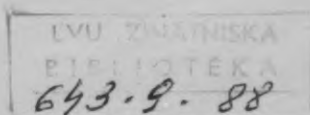 LVU ZINĀTNISKA
BIBLIOTEKA
643. 9. 88